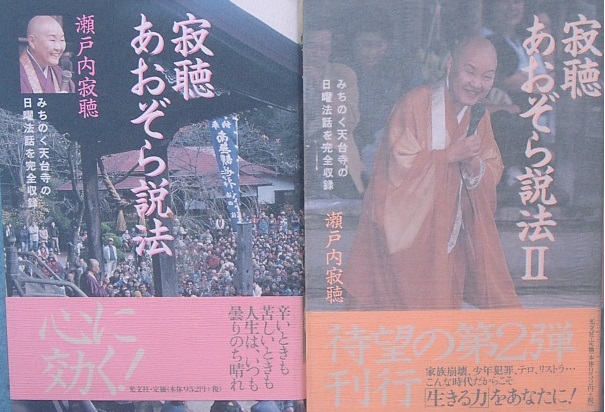 寂聴
あおぞら説法
瀬戸内寂聴
みちのく天台寺の
日曜法話を完全収録
心に
効く!
辛いときも
苦しいときも
人生は、いつも
曇りのち晴れ
光文社・定価(本体952円+税)
寂聴
あおぞら説法Ⅱ
みちのく天台寺の
日曜法話を完全収録
瀬戸内寂聴
待望の第2弾
刊行
家族崩壊、少年犯罪、テロ、リストラ…
こんな時代だからこそ
「生きる力」をあなたに!